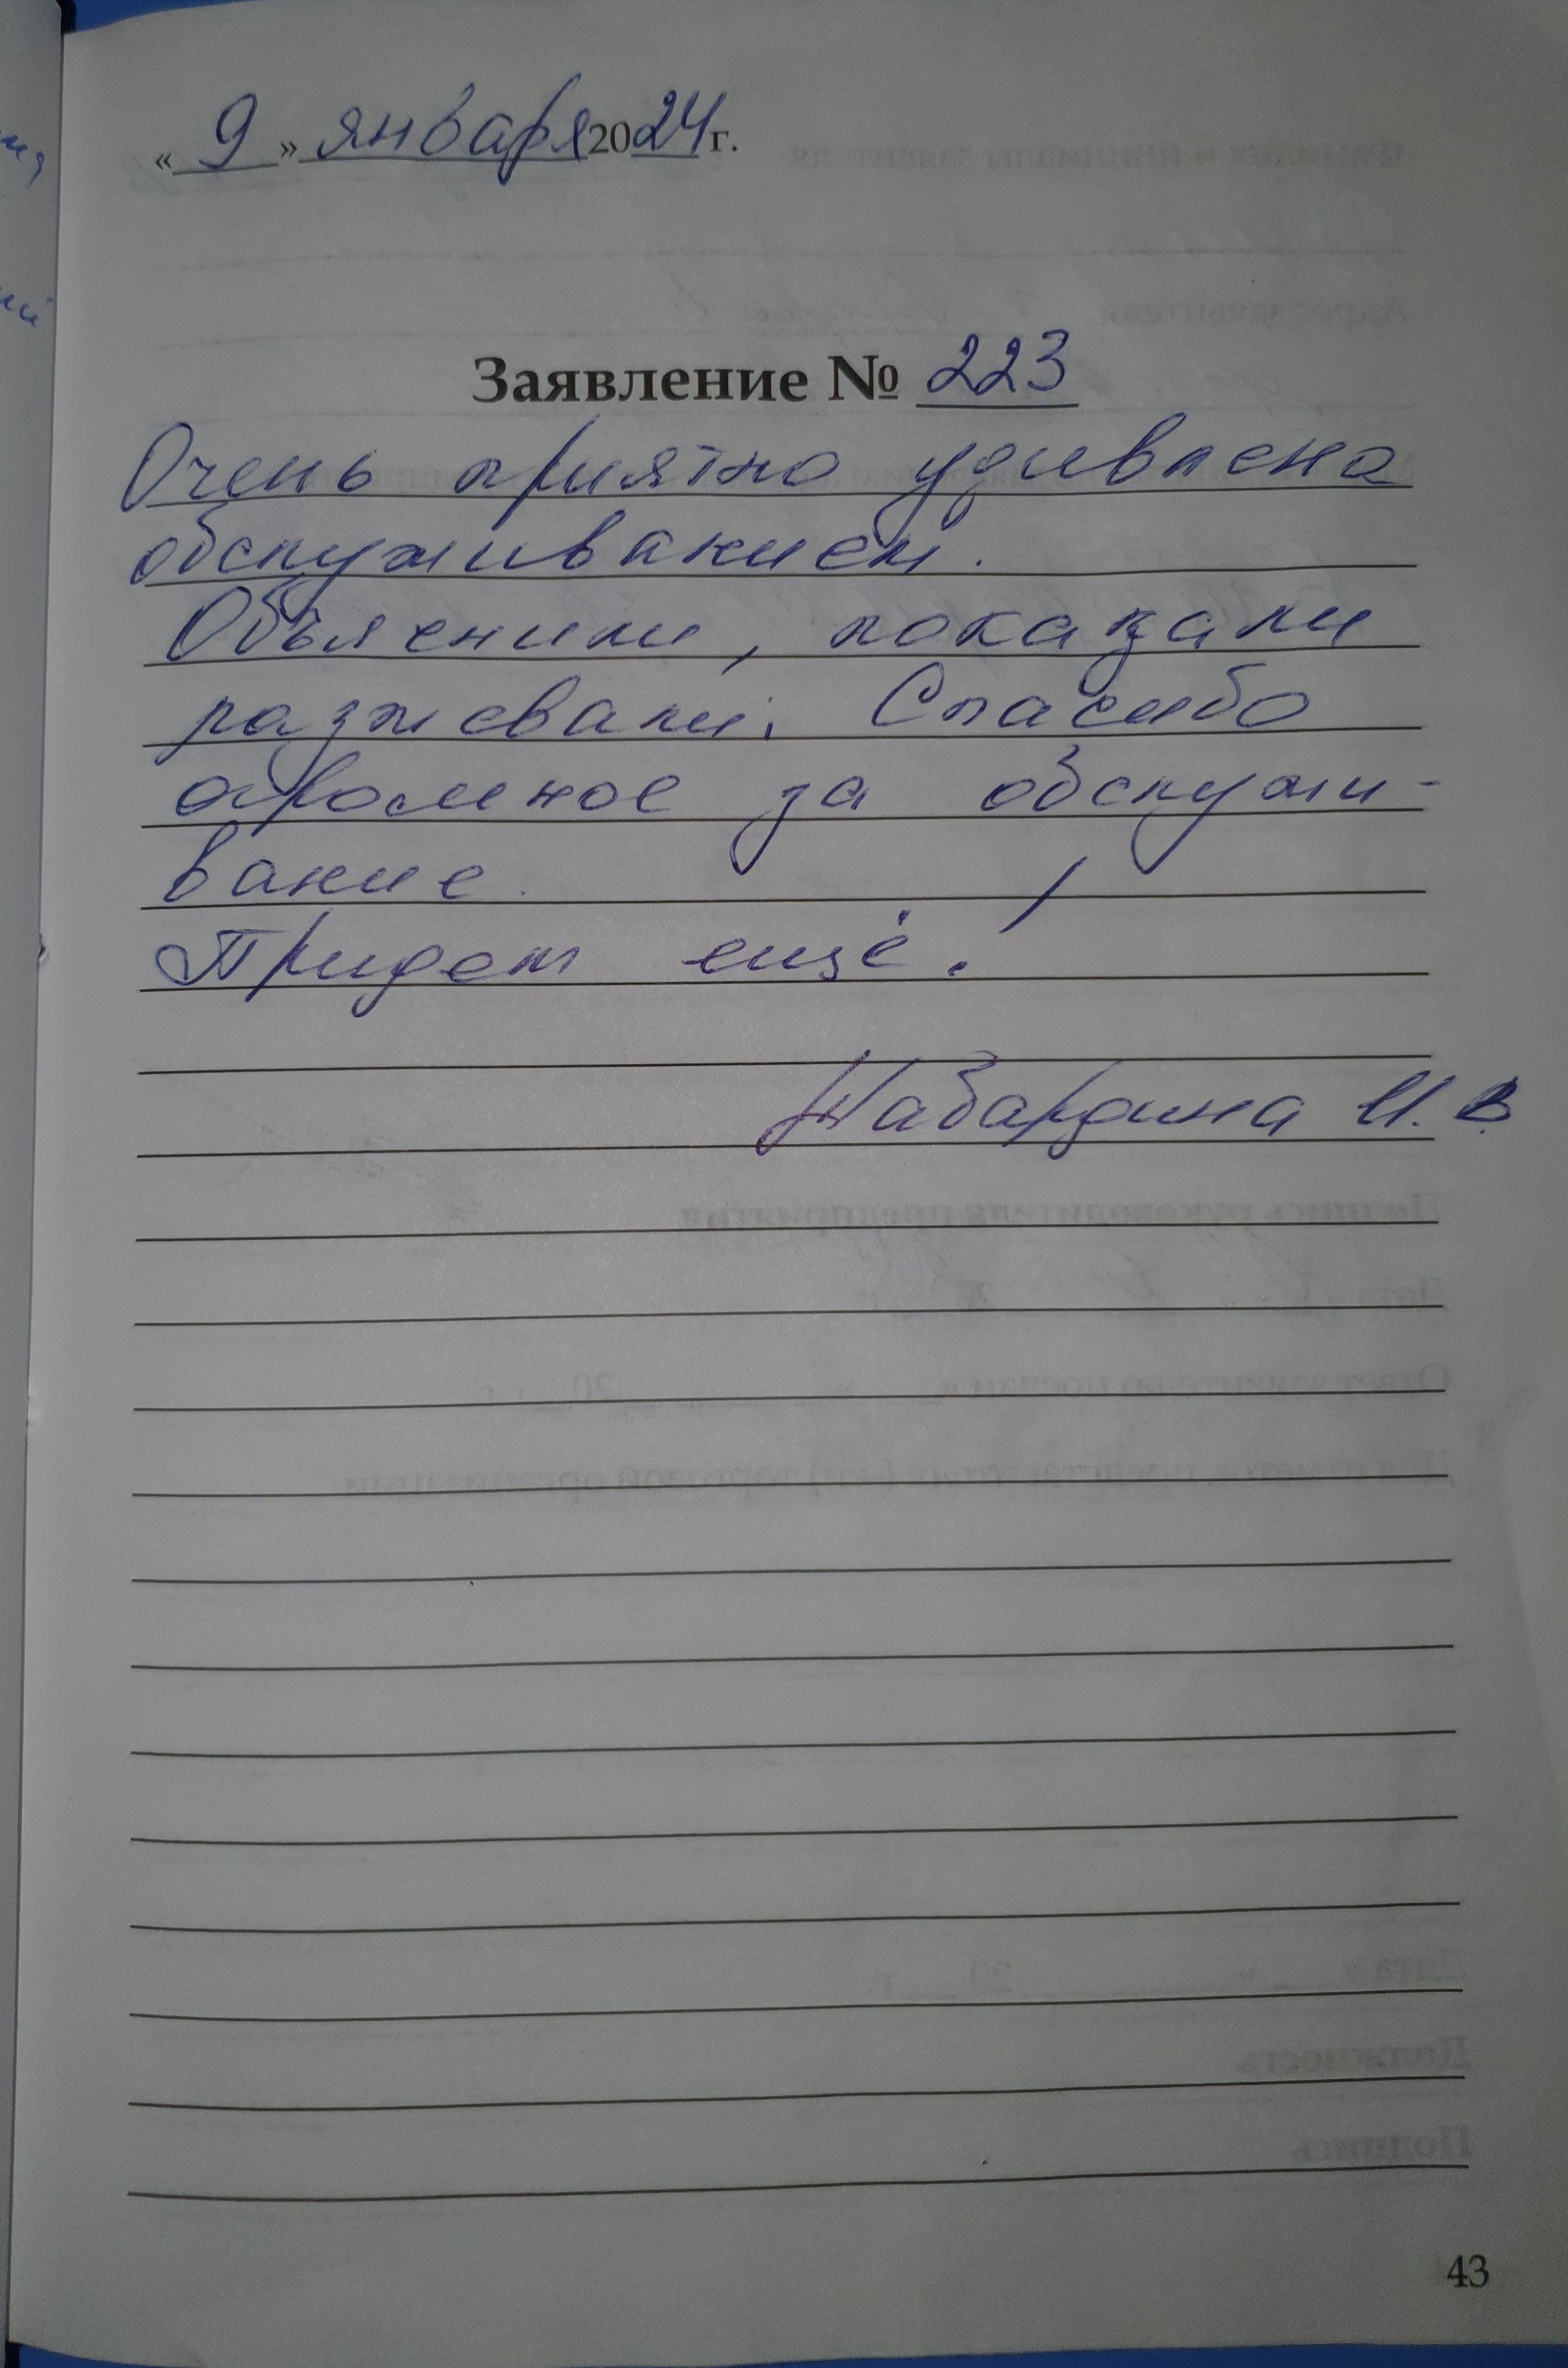 « 9 » января 2024 г.
Заявление № 223
Очень приятно удивлена
обслуживанием.
Объяснили, показали
разжевали. Спасибо
огромное за обслужи-
вание.
Придем ещё!
И. В
43